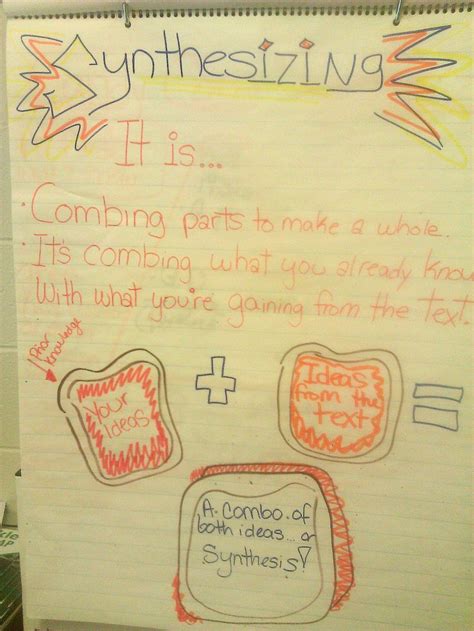 Synthesizing
It is...
· Combing parts to make a whole.
· It's combing what you already know
With what you're gaining from the text.
Prior
knowledge
Your
Ideas
+
Ideas
from the
text
=
A combo of
both ideas... or
Synthesis!